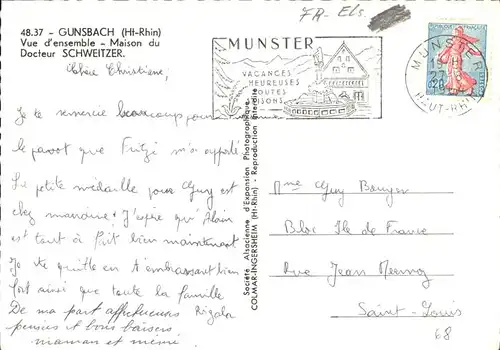 48.37 - GUNSBACH (Ht-Rhin)
Vue d'ensemble - Maison du
Docteur SCHWEITZER.
FR-Els.
MUNSTER
VACANCES
HEUREUSES
TOUTES
SAISONS
MUNSTER
HAUT-RHIN
Chère Christiane,
Je te remercie beaucoup pour
le pavot que Fritzi m'a apporté.
La petite médaille pour Guy est
chez mandine! J'espère qu'Alain
est tout à fait bien maintenant
Je te quitte en t'embrassant bien
fort ainsi que toute la famille
De ma part affectueuses
pensées et bons baisers
maman et mémé
Société Alsacienne d'Expansion Photographique
COLMAR-INGERSHEIM (Ht-Rhin) - Reproduction Interdite
Mme Guy
Bloc Ile de France
Rue Jean Mermoz
Saint-Louis
68